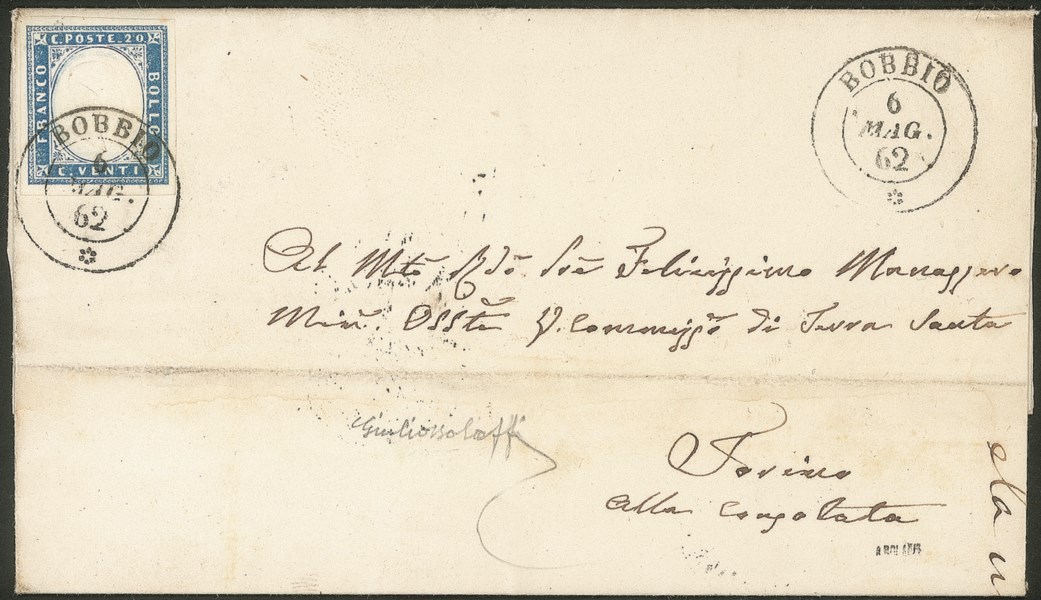 C. POSTE. 20.
FRANCO
BOLLO
C. VENTI
BOBBIO
6
MAG.
62
BOBBIO
6
MAG.
62
Al Mto Rdo Felicissimo
Min. Osste V. Commisso di Terra Santa
Giulio Bolaffi
Torino
alla Consolata
A BOLAFFI